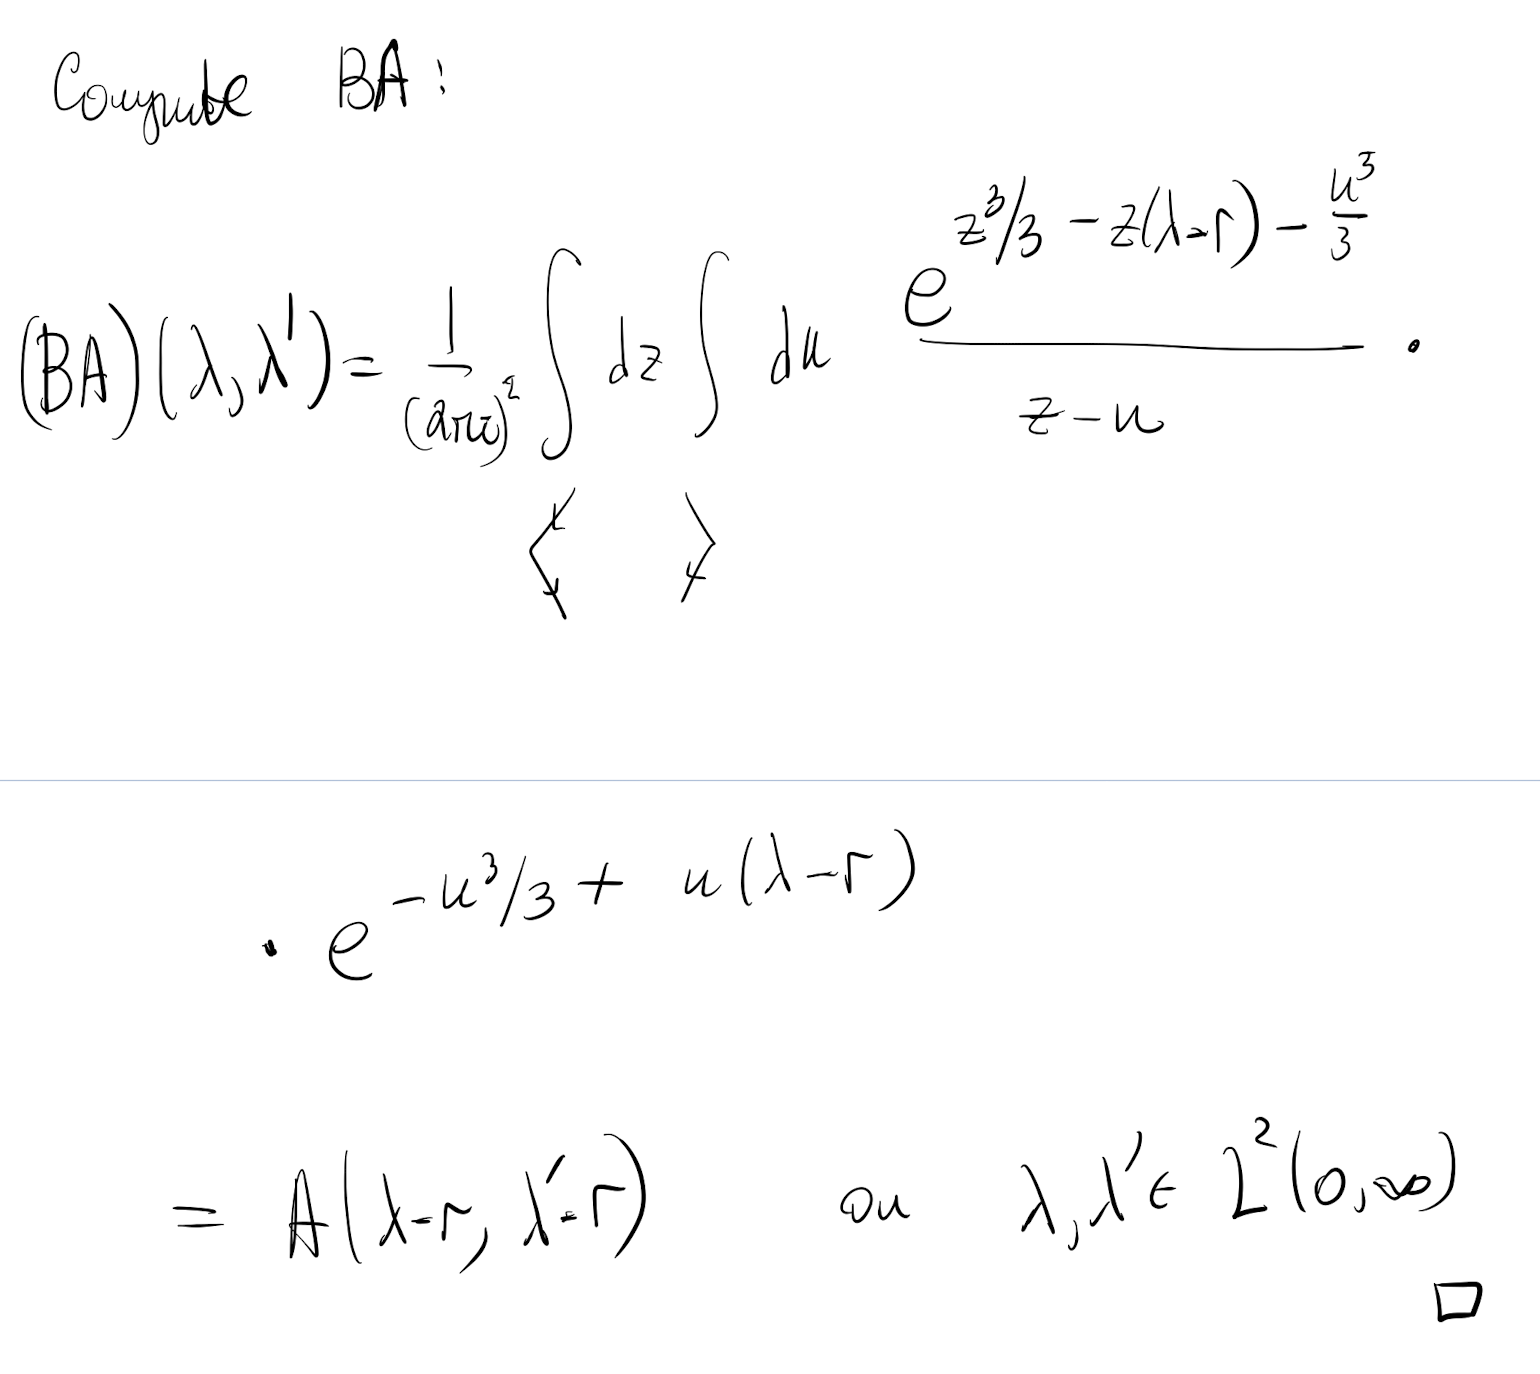 Compute BA:
(BA)(λ, λ') = 1/(2πi)² ∫ dz ∫ du e^{z³/3 - z(λ-r) - u³/3} / (z - u) ·
· e^{-u³/3 + u(λ-r)}
= A(λ-r, λ'-r) on λ, λ' ∈ L²(0, ∞)
□